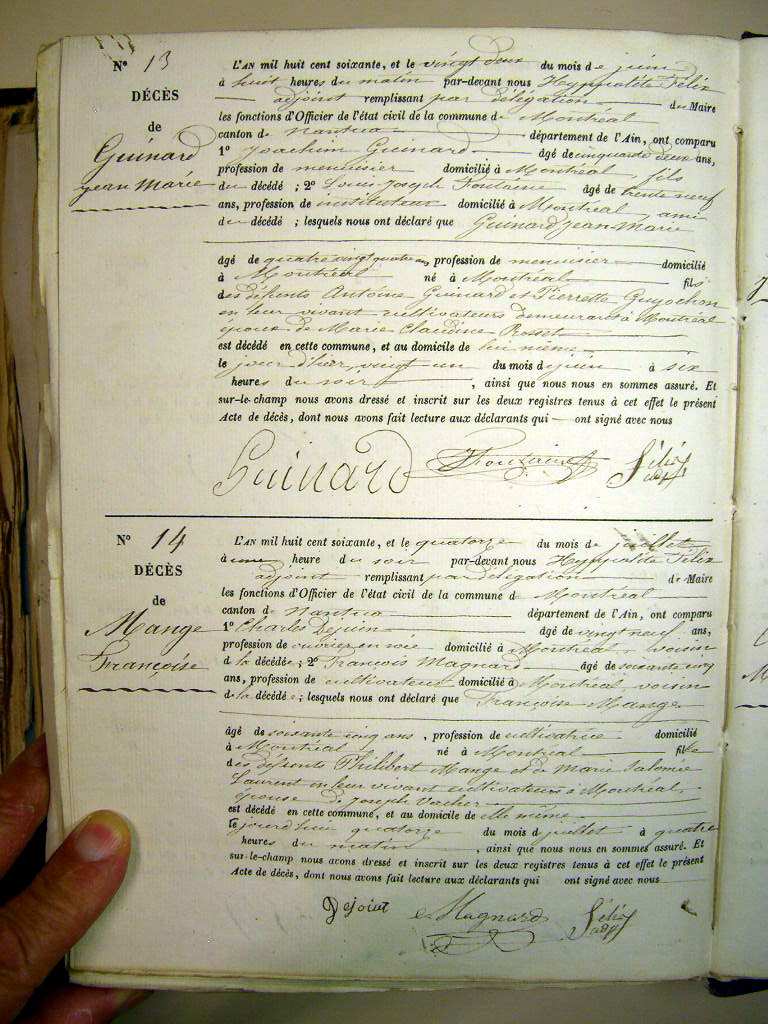 N° 13
DÉCÈS
de
Guinard
jean Marie
L'AN mil huit cent soixante, et le vingt deux du mois de juin
à huit heures du matin par-devant nous Hyppolite Félix
adjoint remplissant par délégation du Maire
les fonctions d'Officier de l'état civil de la commune de Montréal
canton de Nantua département de l'Ain, ont comparu
1° Joachim Guinard âgé de cinquante deux ans,
profession de menuisier domicilié à Montréal, fils
du décédé ; 2° Louis Joseph Fontaine âgé de trente neuf
ans, profession de instituteur domicilié à Montréal, ami
du décédé ; lesquels nous ont déclaré que Guinard jean Marie
âgé de quatre vingt quatre ans, profession de menuisier domicilié
à Montréal né à Montréal fils
des défunts Antoine Guinard et Pierrette Guyochon
en leur vivant cultivateurs demeurant à Montréal
époux de Marie Claudine Rosset
est décédé en cette commune, et au domicile de lui même
le jour d'hier, vingt un du mois de juin à six
heures du soir, ainsi que nous nous en sommes assuré. Et
sur-le-champ nous avons dressé et inscrit sur les deux registres tenus à cet effet le présent
Acte de décès, dont nous avons fait lecture aux déclarants qui ont signé avec nous
Guinard Fontaine Félix
adj
N° 14
DÉCÈS
de
Mange
Françoise
L'AN mil huit cent soixante, et le quatorze du mois de juillet
à une heure du soir par-devant nous Hyppolite Félix
adjoint remplissant par délégation de Maire
les fonctions d'Officier de l'état civil de la commune de Montréal
canton de Nantua département de l'Ain, ont comparu
1° Charles Dejoin âgé de vingt neuf ans,
profession de ouvrier en soie domicilié à Montréal, voisin
de la décédée ; 2° François Magnard âgé de soixante cinq
ans, profession de cultivateur domicilié à Montréal voisin
de la décédée ; lesquels nous ont déclaré que Françoise Mange
âgé de soixante cinq ans, profession de cultivatrice domicilié
à Montréal né à Montréal fille
des défunts Philibert Mange et de Marie Salomée
Laurent en leur vivant cultivateurs à Montréal,
épouse de Joseph Vacher
est décédé en cette commune, et au domicile de elle même
le jourd'hui quatorze du mois de juillet à quatre
heures du matin, ainsi que nous nous en sommes assuré. Et
sur-le-champ nous avons dressé et inscrit sur les deux registres tenus à cet effet le présent
Acte de décès, dont nous avons fait lecture aux déclarants qui ont signé avec nous
Dejoint Magnard Félix
adj